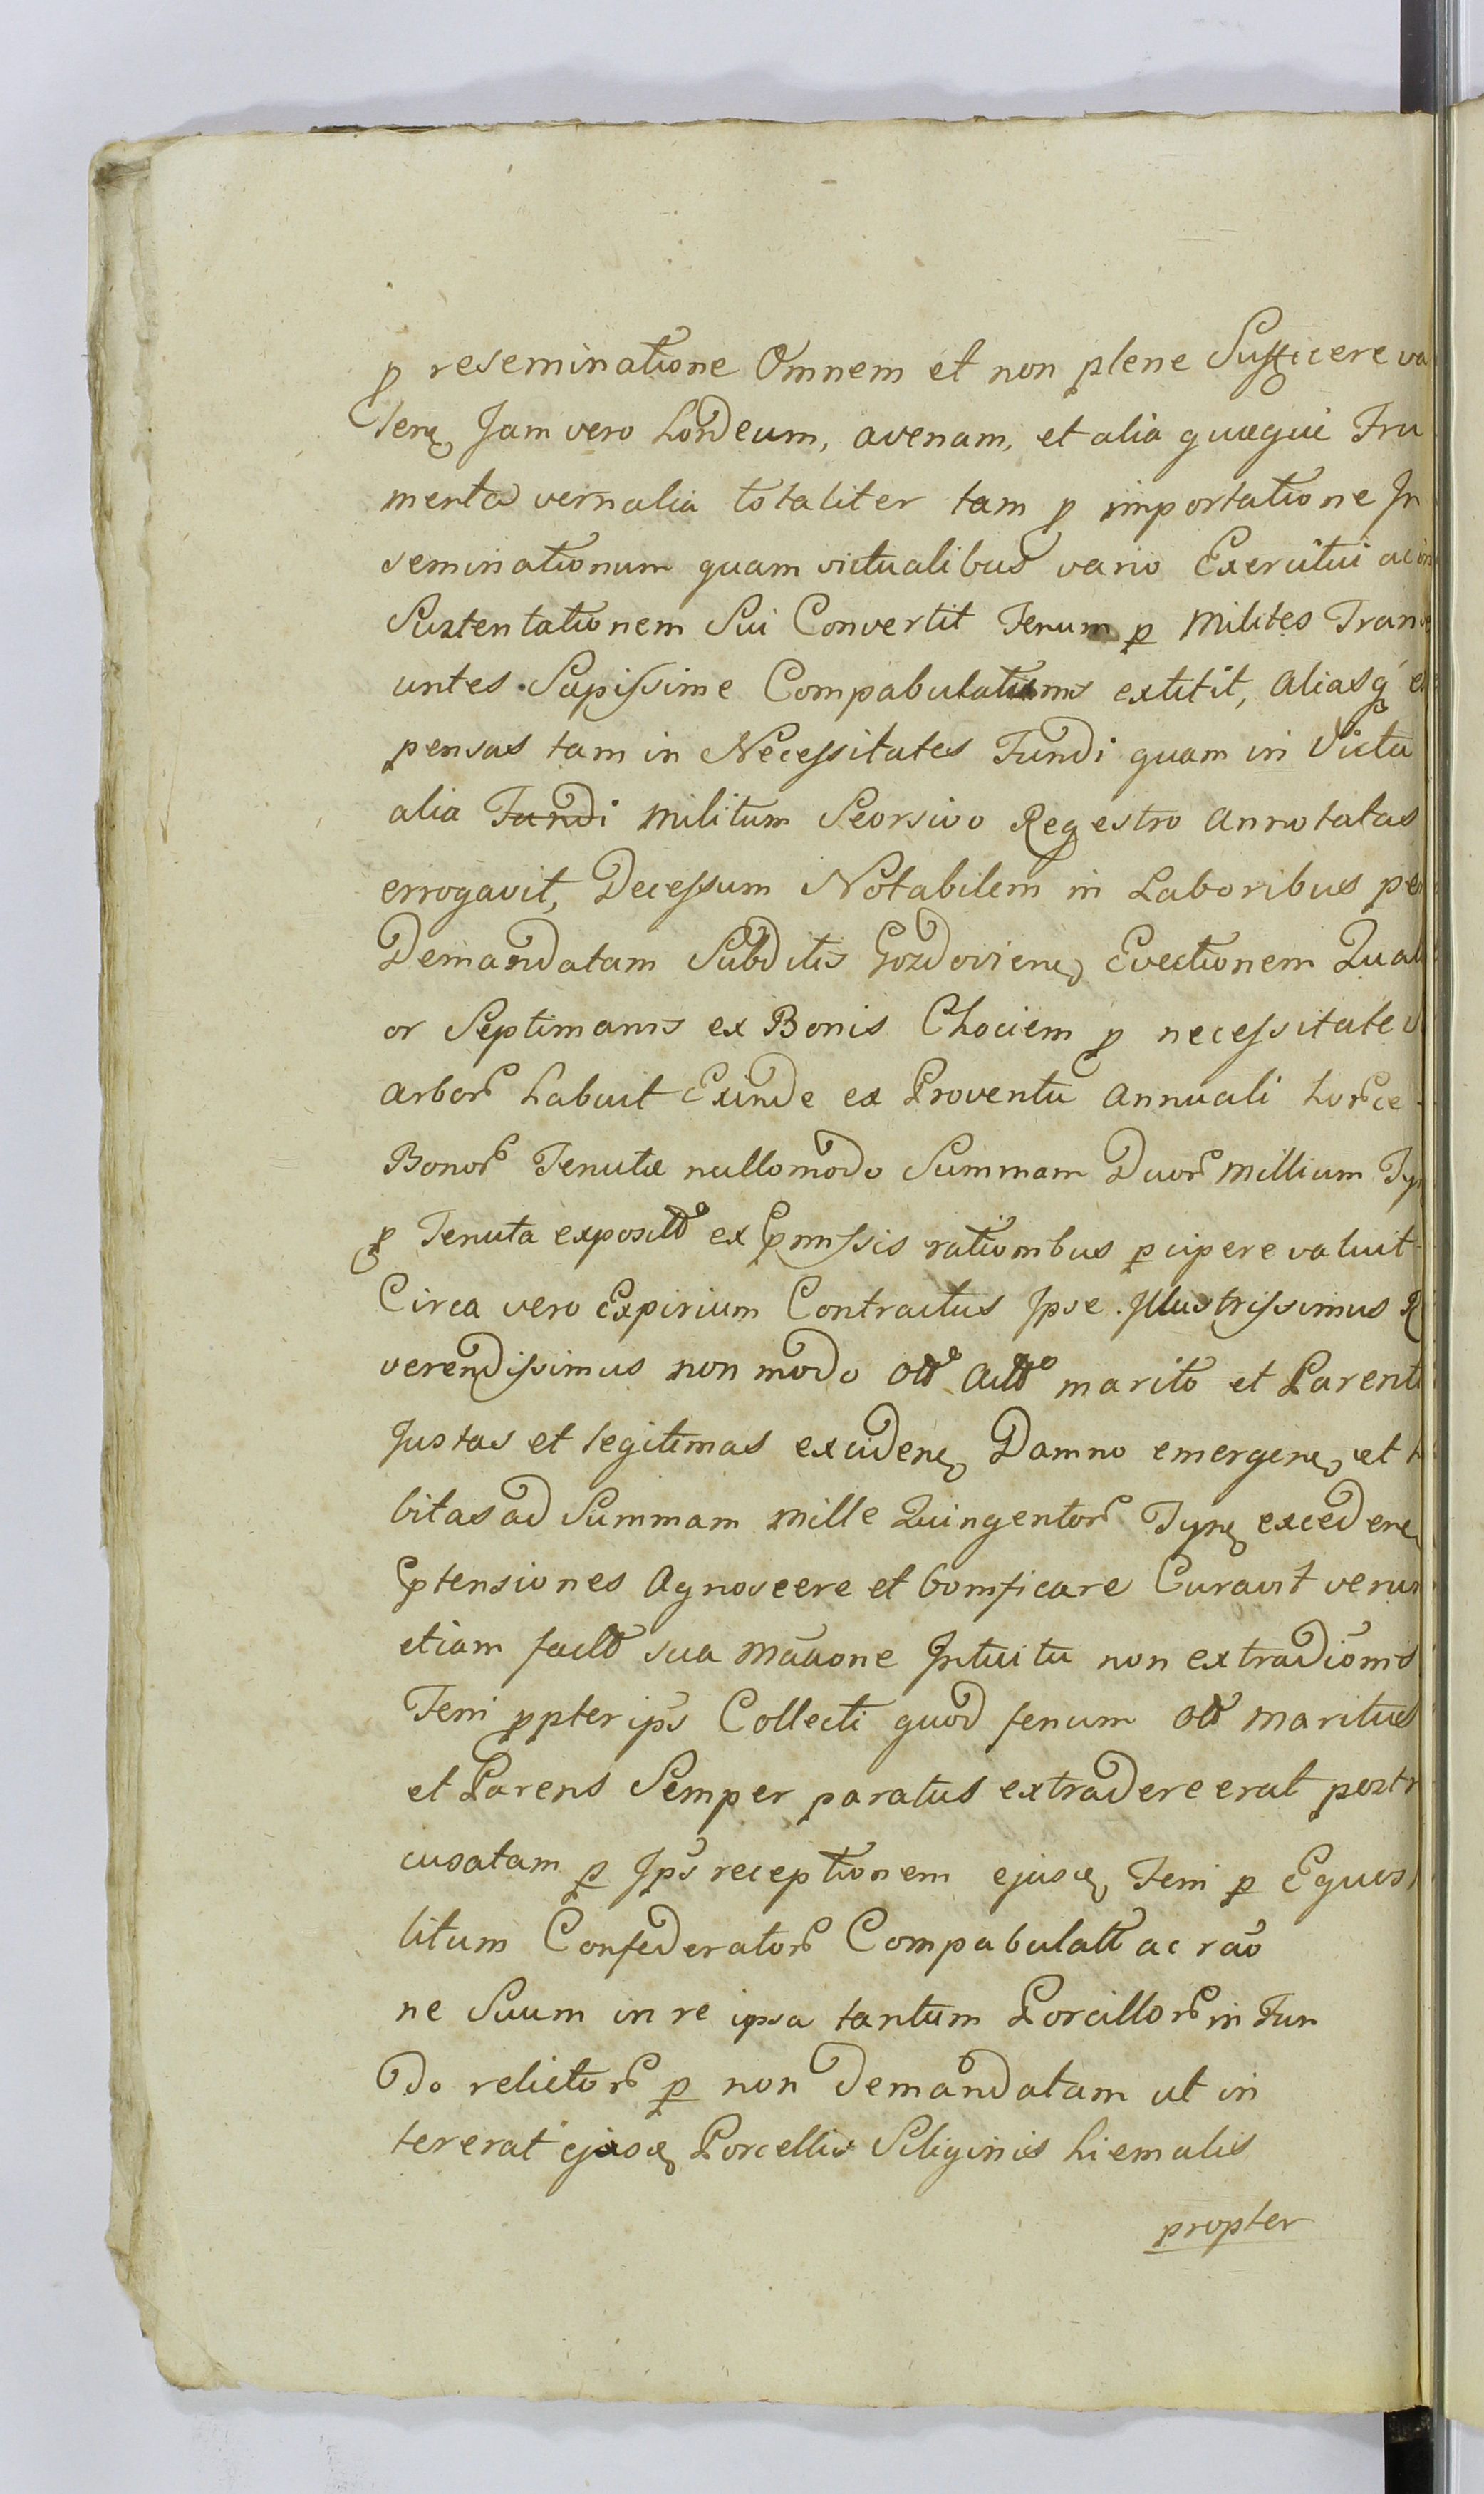 p reseminatione Omnem et non plene Sufficere va
lenę Jam vero hordeum, avenam, et alia quæque Fru
menta vernalia totaliter tam p importatione In
seminationum quam victualibus vario Exercitui ac in
Sustentationem Sui Convertit Fenum p Milites Trans
untes Sæpissime Compabulatum extitit, aliasq́ ex
pensas tam in Necessitates Fundi quam in Victu
alia Fundi Militum Seorsivo Regestro annotatas
errogavit, Decessum Notabilem in Laboribus pe
Demandatam Subditis Gozdoviens Evectionem Quat
or Septimanis ex Bonis Chociem p necessitate
arbor̃ habuit Exinde ex Proventu annuali hor̃ce
Bonor̃ Tenutæ nullomodo Summam Duor̃ Millium Ty
p Tenuta exposit̃ ex p̃missis rationibus pcipere valuit
Circa vero Expirium Contractus Ipse Illustrissimus R
verendissimus non modo Ol̃t̃ Act̃ marito et Parenti
Justas et legitimas excidenę Damno emergenę et
bitas ad Summam Mille Quingentor̃ Tynę excedenę
p̃tensiones Agnoscere et bonificare Curavit verum
etiam fact̃ sua mãaone Intuitu non extradiõnis
Feni ppter ip̃s Collecti quod fenum Olt̃ Maritus
et Parens Semper paratus extradere erat post r
cusatam p Ip̃s receptionem ejusdę Feni p Eques
litum Confederator̃ Compabulati ac rãõ
ne Suum in re ipsa tantum Porcillor̃ in Fun
do relictor̃ p non Demandatam ut in
tererat ejusdę Porcellis Siliginis hiemalis
propter